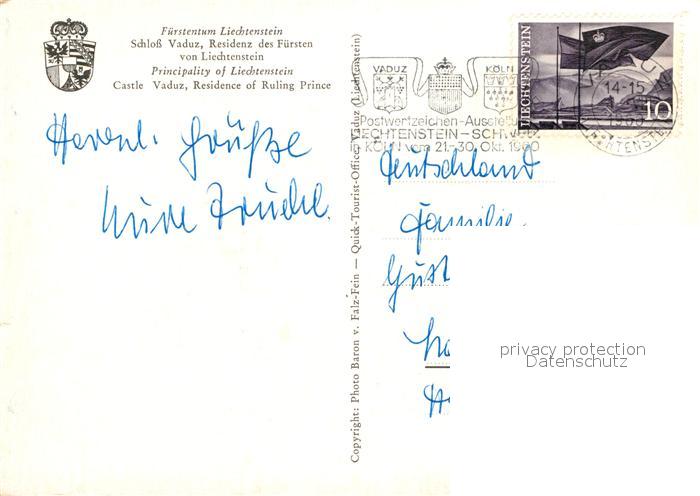 Fürstentum Liechtenstein
Schloß Vaduz, Residenz des Fürsten
von Liechtenstein
Principality of Liechtenstein
Castle Vaduz, Residence of Ruling Prince
Herzl. Grüße
Copyright: Photo Baron v. Falz-Fein — Quick-Tourist-Office, Vaduz (Liechtenstein)
VADUZ KÖLN
Postwertzeichen-Ausstellu
LIECHTENSTEIN - SCHW
KÖLN vom 21.-30. Okt. 1960
LIECHTENSTEIN
10
14-15
Deutschland
Familie
Gust
privacy protection
Datenschutz